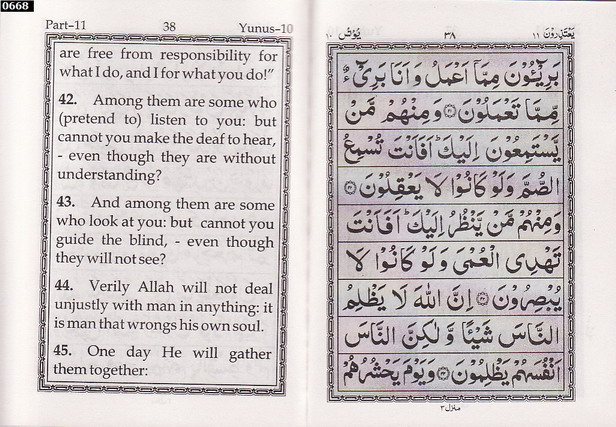 0668
Part-11 38 Yunus-10
are free from responsibility for
what I do, and I for what you do!"
42. Among them are some who
(pretend to) listen to you: but
cannot you make the deaf to hear,
- even though they are without
understanding?
43. And among them are some
who look at you: but cannot you
guide the blind, - even though
they will not see?
44. Verily Allah will not deal
unjustly with man in anything: it
is man that wrongs his own soul.
45. One day He will gather
them together:
يُوْنُس ١٠ ٣٨ يَعْتَذِرُوْنَ ١١
بَرِيْٓـُٔوْنَ مِمَّاۤ اَعْمَلُ وَ اَنَا بَرِیْٓءٌ
مِّمَّا تَعْمَلُوْنَ ۝٤١ وَ مِنْهُمْ مَّنْ
يَّسْتَمِعُوْنَ اِلَيْكَ ؕ اَفَاَنْتَ تُسْمِعُ
الصُّمَّ وَ لَوْ كَانُوْا لَا يَعْقِلُوْنَ ۝٤٢
وَ مِنْهُمْ مَّنْ يَّنْظُرُ اِلَيْكَ ؕ اَفَاَنْتَ
تَهْدِى الْعُمْىَ وَ لَوْ كَانُوْا لَا
يُبْصِرُوْنَ ۝٤٣ اِنَّ اللّٰهَ لَا يَظْلِمُ
النَّاسَ شَيْـًٔا وَّ لٰكِنَّ النَّاسَ
اَنْفُسَهُمْ يَظْلِمُوْنَ ۝٤٤ وَ يَوْمَ يَحْشُرُهُمْ
منزل ٣